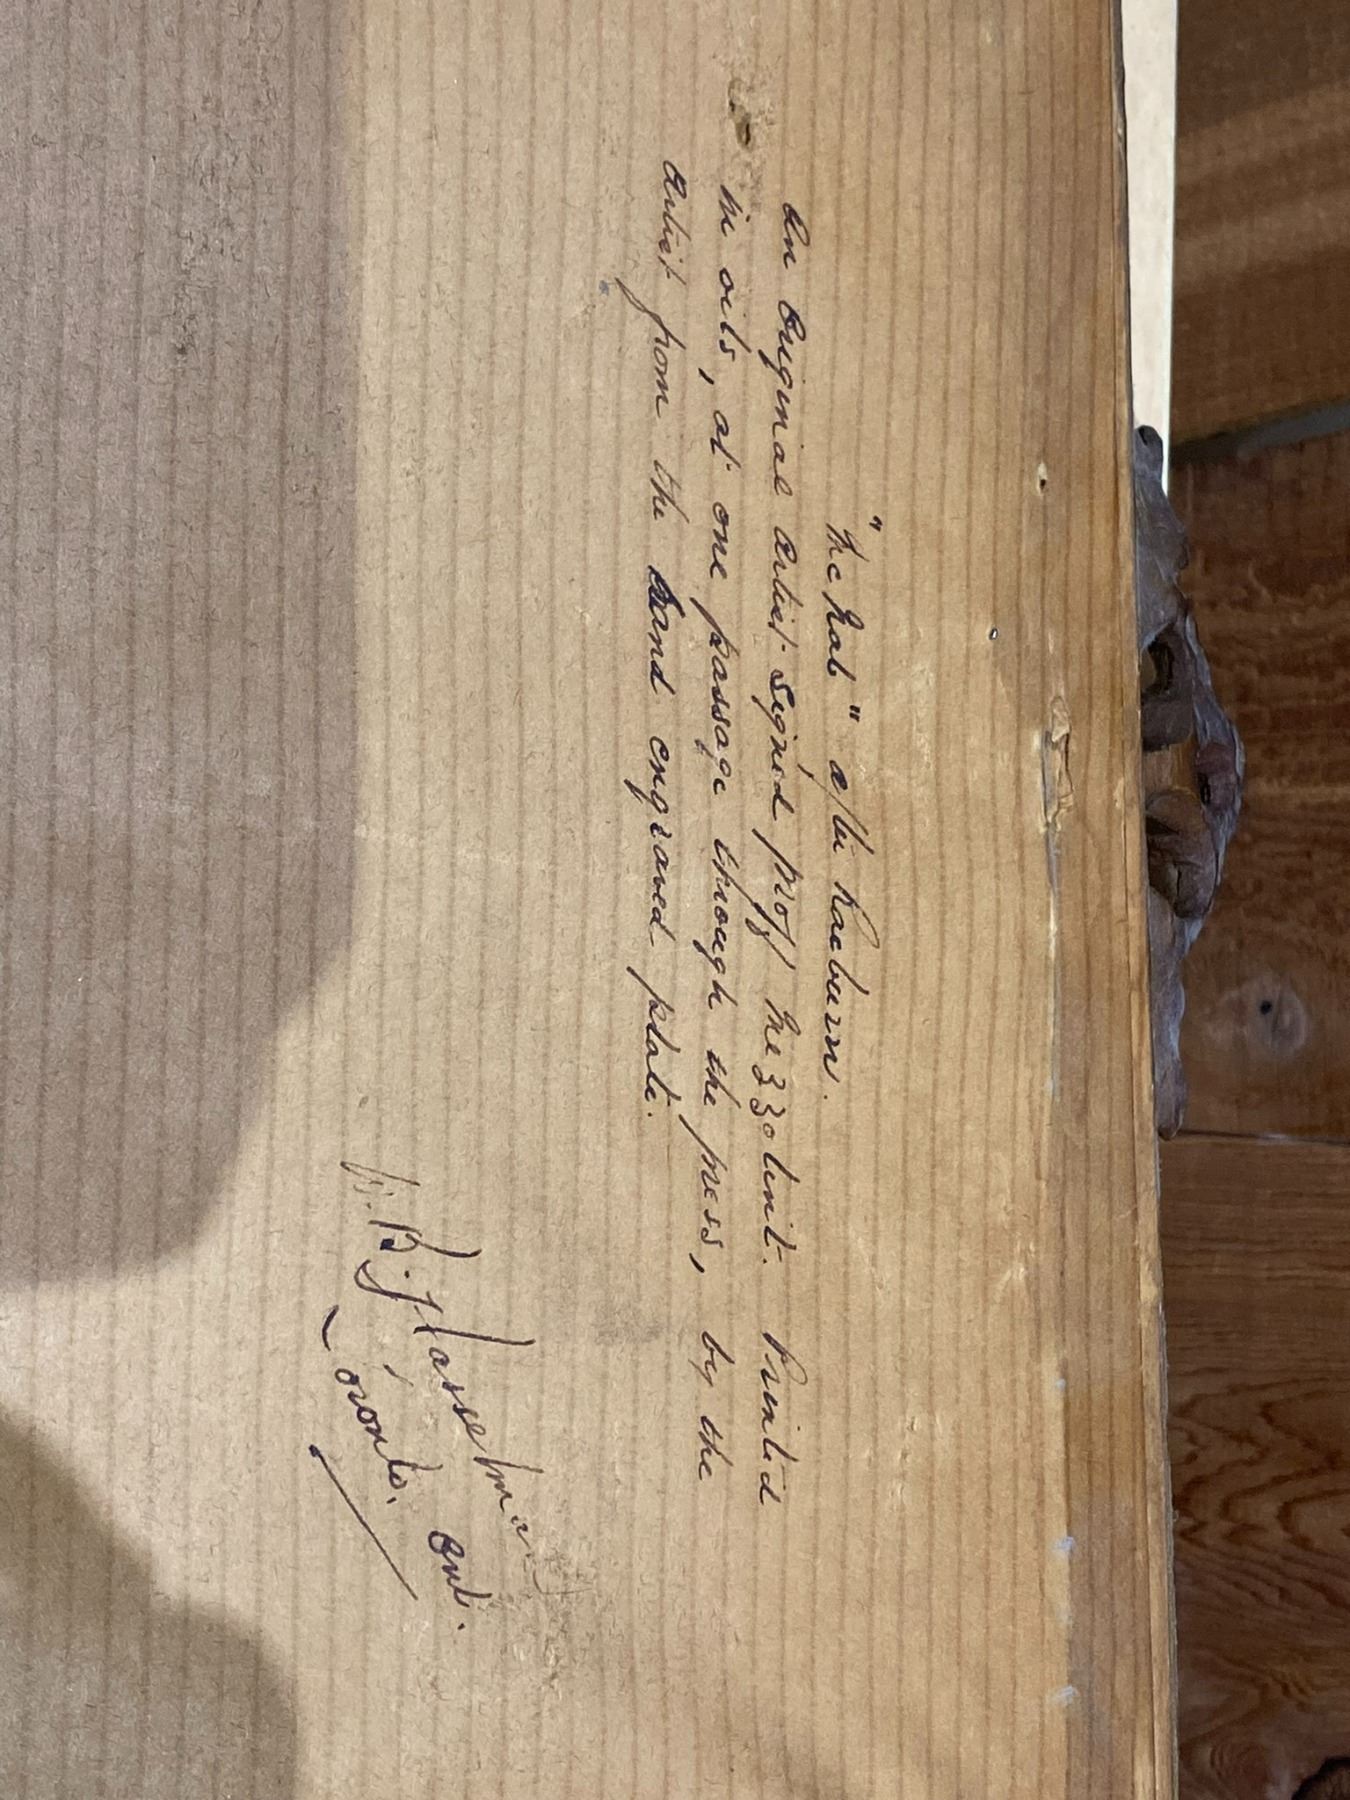 "McNab" after Raeburn.
An Original artist signed proof Mezzotint. Printed
in oils, at one passage through the press, by the
artist from the hand engraved plate.
W. B.
Toronto. Ont.